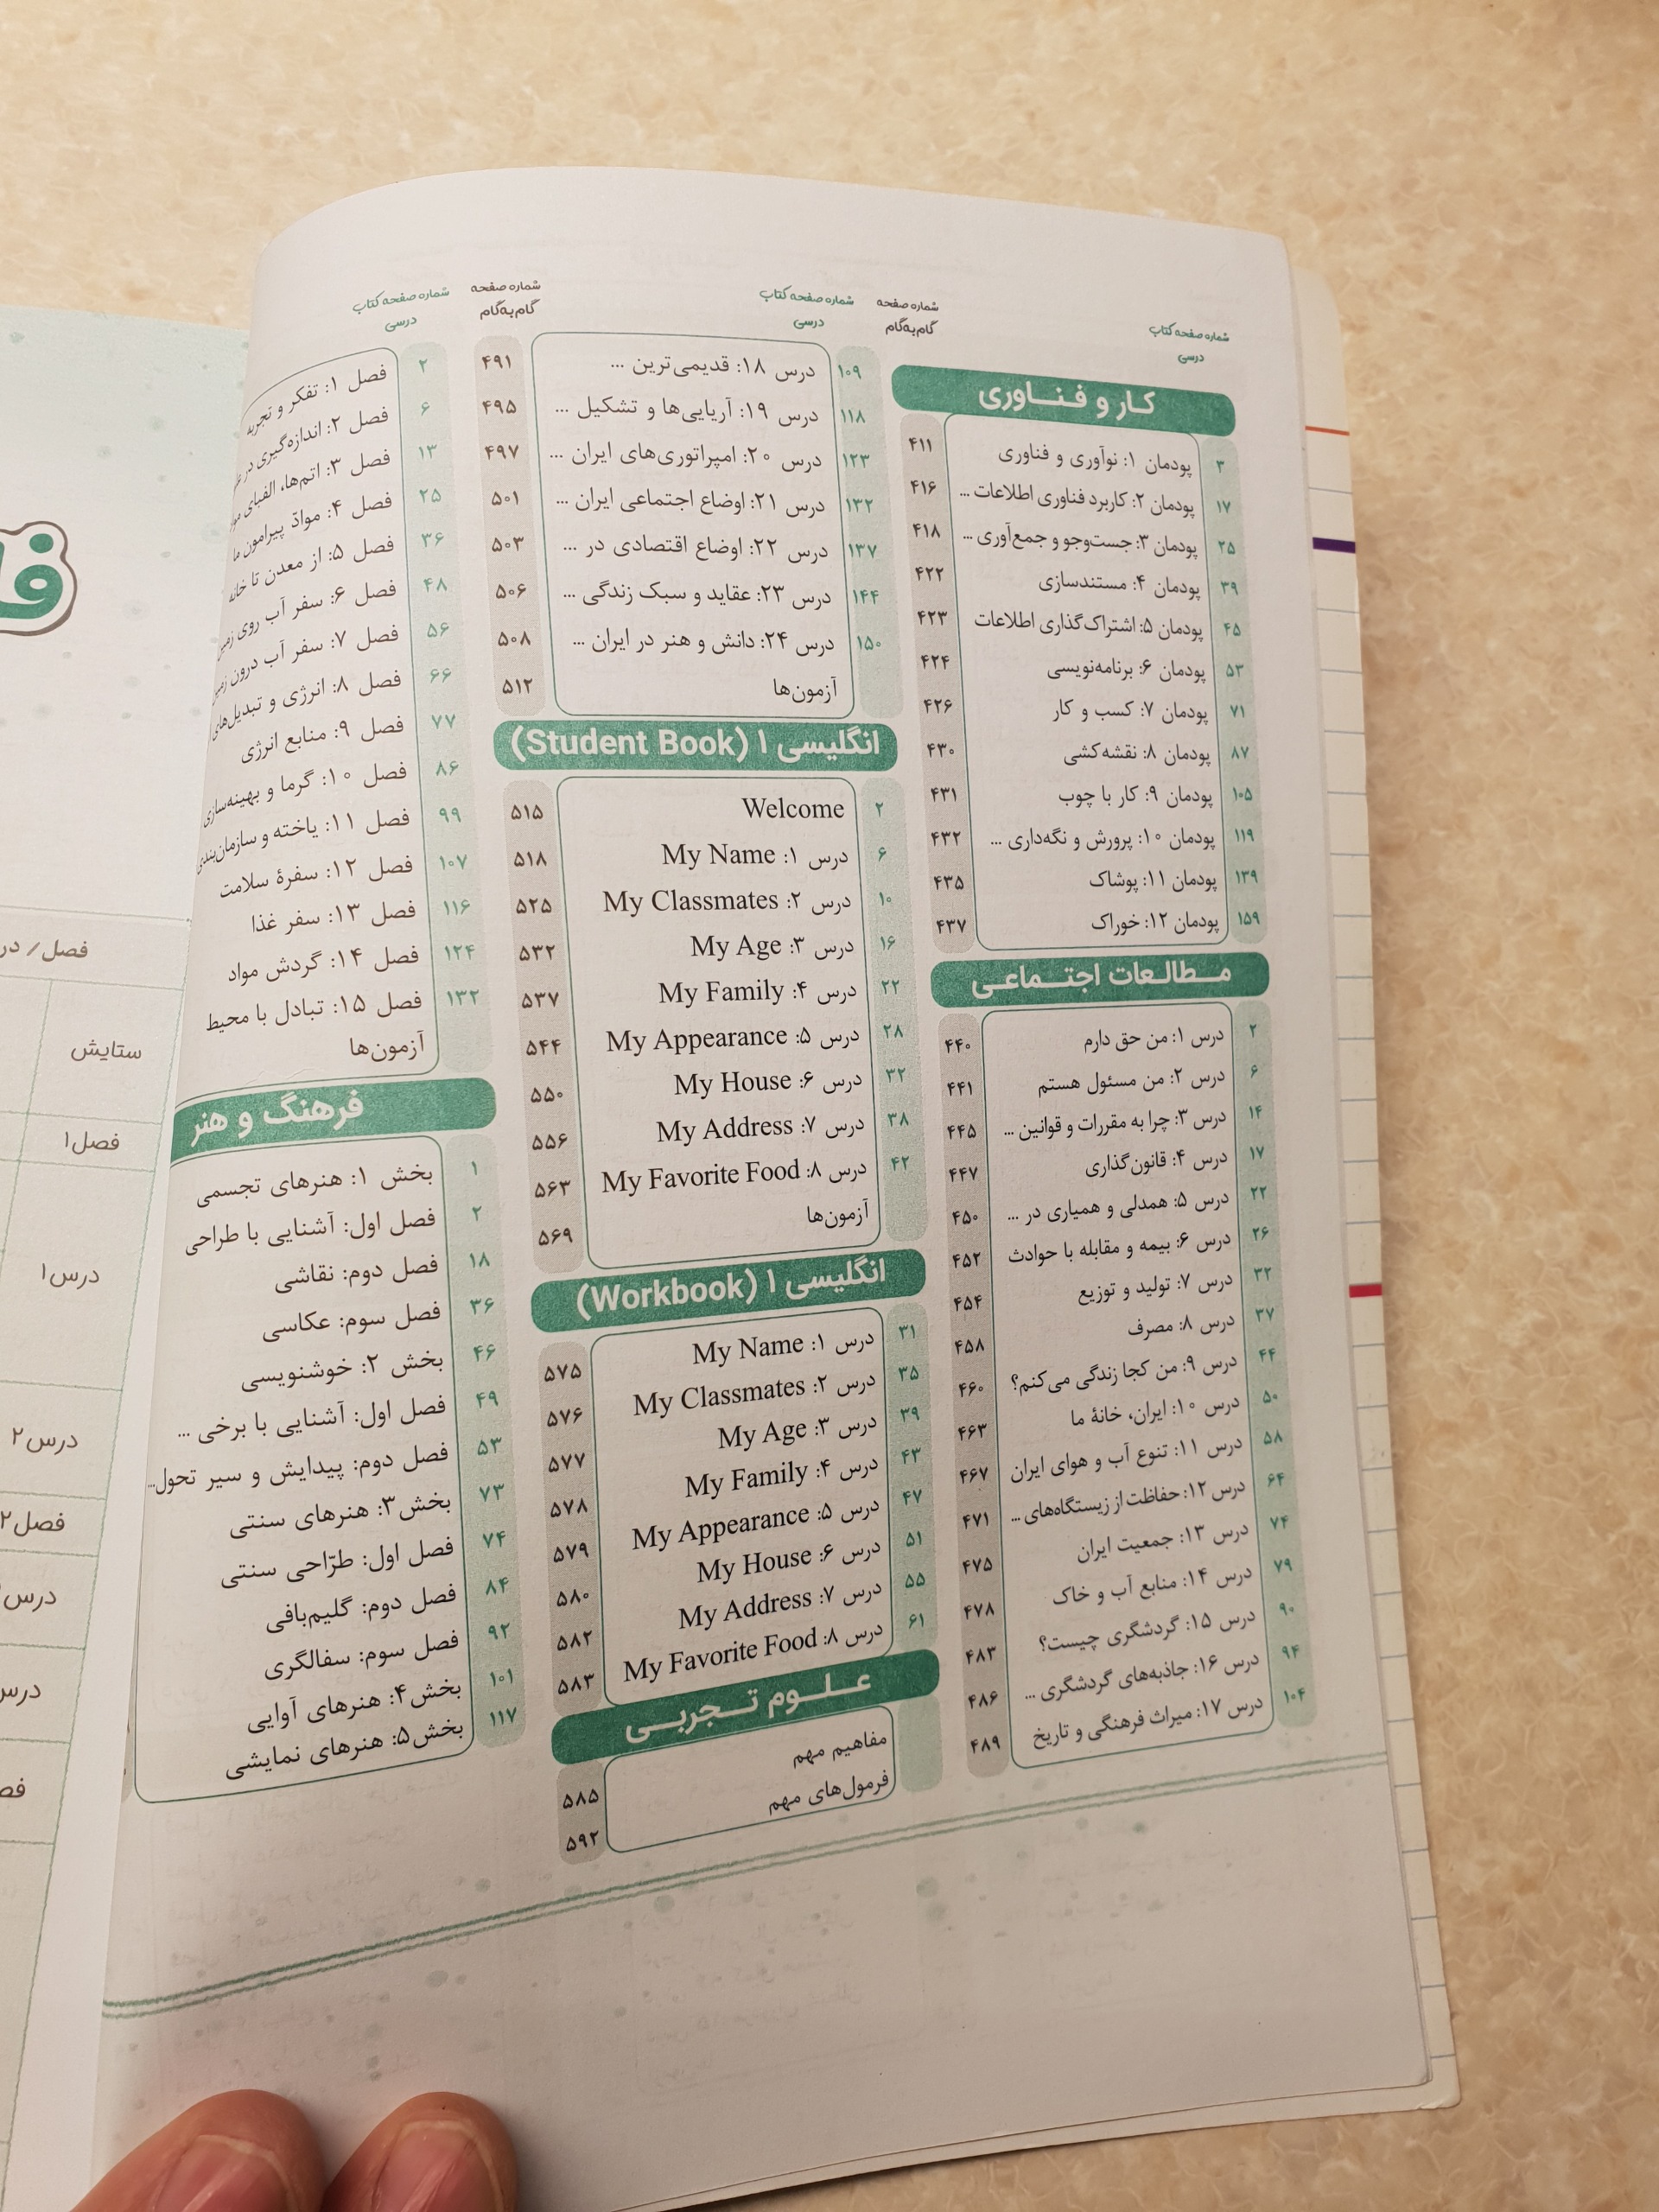 شماره صفحه کتاب درسی
شماره صفحه گام‌به‌گام
کار و فناوری
۳ پودمان ۱: نوآوری و فناوری ۴۱۱
۱۷ پودمان ۲: کاربرد فناوری اطلاعات ... ۴۱۶
۲۵ پودمان ۳: جست‌وجو و جمع‌آوری ... ۴۱۸
۳۹ پودمان ۴: مستندسازی ۴۲۲
۴۵ پودمان ۵: اشتراک‌گذاری اطلاعات ۴۲۳
۵۳ پودمان ۶: برنامه‌نویسی ۴۲۴
۷۱ پودمان ۷: کسب و کار ۴۲۶
۸۷ پودمان ۸: نقشه‌کشی ۴۳۰
۱۰۵ پودمان ۹: کار با چوب ۴۳۱
۱۱۹ پودمان ۱۰: پرورش و نگه‌داری ... ۴۳۲
۱۳۹ پودمان ۱۱: پوشاک ۴۳۵
۱۵۹ پودمان ۱۲: خوراک ۴۳۷
مطالعات اجتماعی
۲ درس ۱: من حق دارم ۴۴۰
۶ درس ۲: من مسئول هستم ۴۴۱
۱۴ درس ۳: چرا به مقررات و قوانین ... ۴۴۵
۱۷ درس ۴: قانون‌گذاری ۴۴۷
۲۲ درس ۵: همدلی و همیاری در ... ۴۵۰
۲۶ درس ۶: بیمه و مقابله با حوادث ۴۵۲
۳۲ درس ۷: تولید و توزیع ۴۵۴
۳۷ درس ۸: مصرف ۴۵۸
۴۴ درس ۹: من کجا زندگی می‌کنم؟ ۴۶۰
۵۰ درس ۱۰: ایران، خانهٔ ما ۴۶۳
۵۸ درس ۱۱: تنوع آب و هوای ایران ۴۶۷
۶۴ درس ۱۲: حفاظت از زیستگاه‌های ... ۴۷۱
۷۴ درس ۱۳: جمعیت ایران ۴۷۵
۷۹ درس ۱۴: منابع آب و خاک ۴۷۸
۹۰ درس ۱۵: گردشگری چیست؟ ۴۸۳
۹۴ درس ۱۶: جاذبه‌های گردشگری ... ۴۸۶
۱۰۴ درس ۱۷: میراث فرهنگی و تاریخ ۴۸۹
شماره صفحه کتاب درسی
شماره صفحه گام‌به‌گام
۱۰۹ درس ۱۸: قدیمی‌ترین ... ۴۹۱
۱۱۸ درس ۱۹: آریایی‌ها و تشکیل ... ۴۹۵
۱۲۳ درس ۲۰: امپراتوری‌های ایران ... ۴۹۷
۱۳۲ درس ۲۱: اوضاع اجتماعی ایران ... ۵۰۱
۱۳۷ درس ۲۲: اوضاع اقتصادی در ... ۵۰۳
۱۴۴ درس ۲۳: عقاید و سبک زندگی ... ۵۰۶
۱۵۰ درس ۲۴: دانش و هنر در ایران ... ۵۰۸
آزمون‌ها ۵۱۲
انگلیسی ۱ (Student Book)
۲ Welcome ۵۱۵
۶ درس ۱: My Name ۵۱۸
۱۰ درس ۲: My Classmates ۵۲۵
۱۶ درس ۳: My Age ۵۳۲
۲۲ درس ۴: My Family ۵۳۷
۲۸ درس ۵: My Appearance ۵۴۴
۳۲ درس ۶: My House ۵۵۰
۳۸ درس ۷: My Address ۵۵۶
۴۲ درس ۸: My Favorite Food ۵۶۳
آزمون‌ها ۵۶۹
انگلیسی ۱ (Workbook)
۳۱ درس ۱: My Name ۵۷۵
۳۵ درس ۲: My Classmates ۵۷۶
۳۹ درس ۳: My Age ۵۷۷
۴۳ درس ۴: My Family ۵۷۸
۴۷ درس ۵: My Appearance ۵۷۹
۵۱ درس ۶: My House ۵۸۰
۵۵ درس ۷: My Address ۵۸۲
۶۱ درس ۸: My Favorite Food ۵۸۳
علوم تجربی
مفاهیم مهم ۵۸۵
فرمول‌های مهم ۵۹۲
شماره صفحه کتاب درسی
۲ فصل ۱: تفکر و تجربه
۶ فصل ۲: اندازه‌گیری در
۱۳ فصل ۳: اتم‌ها، الفبای
۲۵ فصل ۴: موادّ پیرامون ما
۳۶ فصل ۵: از معدن تا خانه
۴۸ فصل ۶: سفر آب روی زمین
۵۶ فصل ۷: سفر آب درون زمین
۶۶ فصل ۸: انرژی و تبدیل‌های
۷۷ فصل ۹: منابع انرژی
۸۶ فصل ۱۰: گرما و بهینه‌سازی
۹۹ فصل ۱۱: یاخته و سازمان‌بندی
۱۰۷ فصل ۱۲: سفرهٔ سلامت
۱۱۶ فصل ۱۳: سفر غذا
۱۲۴ فصل ۱۴: گردش مواد
۱۳۲ فصل ۱۵: تبادل با محیط
آزمون‌ها
فرهنگ و هنر
۱ بخش ۱: هنرهای تجسمی
۲ فصل اول: آشنایی با طراحی
۱۸ فصل دوم: نقاشی
۳۶ فصل سوم: عکاسی
۴۶ بخش ۲: خوشنویسی
۴۹ فصل اول: آشنایی با برخی ...
۵۳ فصل دوم: پیدایش و سیر تحول...
۷۳ بخش ۳: هنرهای سنتی
۷۴ فصل اول: طرّاحی سنتی
۸۴ فصل دوم: گلیم‌بافی
۹۲ فصل سوم: سفالگری
۱۰۱ بخش ۴: هنرهای آوایی
۱۱۷ بخش ۵: هنرهای نمایشی
فصل / در
ستایش
فصل۱
درس۱
درس۲
فصل۲